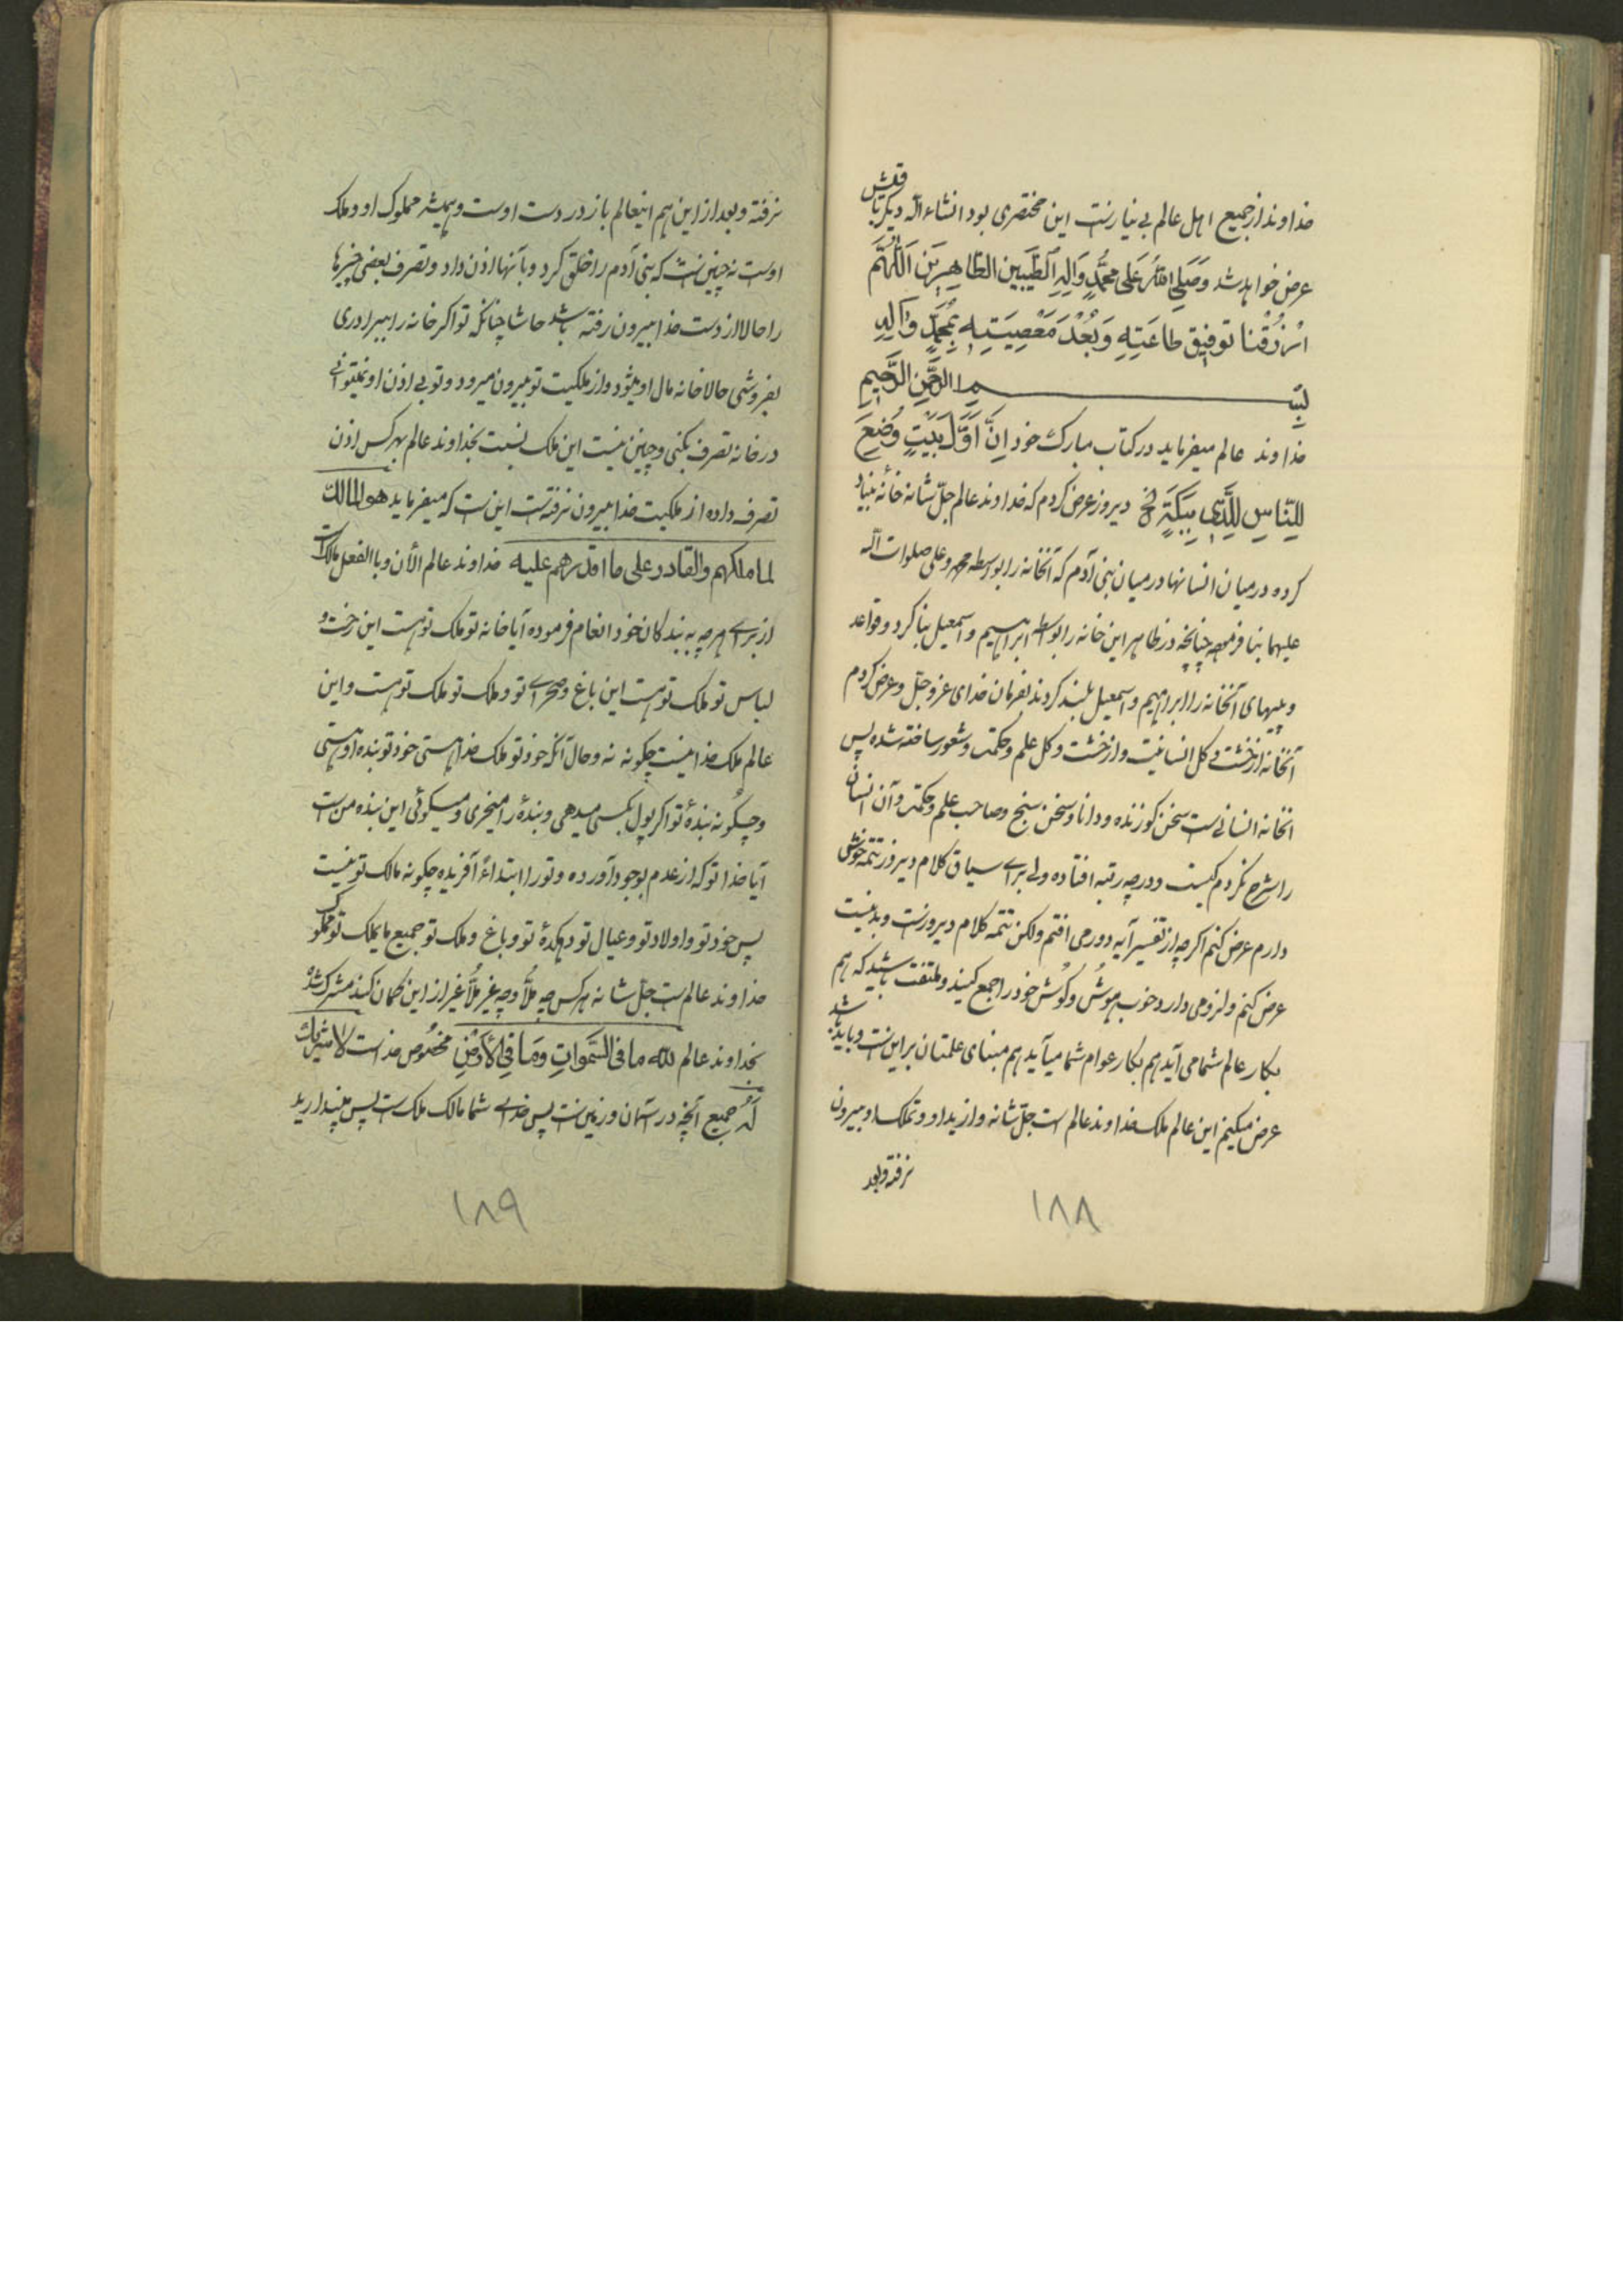 خداوند از جمیع اهل عالم بی نیاز است این مختصری بود انشاء الله دیگر باقیش
عرض خواهد شد وَصَلَّی اللهُ عَلی مُحَمَّدٍ وَآلِهِ الطَّیِّبینَ الطَّاهِرینَ اَللّهُمَّ
ارْزُقْنا تَوفیقَ طاعَتِهِ وَبُعْدَ مَعْصِیَتِهِ بِمُحَمَّدٍ وَآلِهِ
بِسْمِ الله الرَّحْمنِ الرَّحیمِ
خداوند عالم میفرماید در کتاب مبارک خود اِنَّ اَوَّلَ بَیْتٍ وُضِعَ
لِلنّاسِ لَلَّذی بِبَکَّةَ الخ دیروز عرض کردم که خداوند عالم جلّ شانه خانهٔ بنیاد
کرده در میان انسانها در میان بنی آدم که آنخانه را بواسطه محمد و علی صلوات الله
علیهما بنا فرموده چنانچه در ظاهر این خانه را بواسطه ابراهیم و اسمعیل بنا کرد و قواعد
و پیهای آنخانه را ابراهیم و اسمعیل بلند کردند بفرمان خدای عز و جل و عرض کردم
آنخانه از خشت و گل انسانیت و از خشت و گل علم و حکمت و شعور ساخته شده پس
آنخانه انسانی است سخن گو زنده و دانا و سخن سنج و صاحب علم و حکمت و آن انسان
را شرح نکردم کیست و در چه رتبه افتاده ولی برای سیاق کلام دیروز تتمه خوش
دارم عرض کنم اگر چه از تفسیر آیه دور می افتم ولکن تتمه کلام دیروز است و بد نیست
عرض کنم و لزومی دارد خوب هوش و گوش خود را جمع کنید و ملتفت باشید که هم
بکار عالم شما می آید هم بکار عوام شما میآید هم مبنای علمتان بر این است و باید باشد
عرض میکنم این عالم ملک خداوند عالم است جل شانه و از ید او و تملک او بیرون
نرفته و بعد
۱۸۸
نرفته و بعد از این هم اینعالم باز در دست اوست و همیشه مملوک او و ملک
اوست نه چنین است که بنی آدم را خلق کرد و بآنها اذن داد و تصرف بعضی چیزها
را حالا از دست خدا بیرون رفته باشد حاشا چنانکه تو اگر خانه را بیرادری
بفروشی حالا خانه مال او میشود و از ملکیت تو بیرون میرود و تو بی اذن او نمیتوانی
در خانه تصرف بکنی و چنین نیست این ملک نسبت بخداوند عالم بهر کس اذن
تصرف داده از ملکیت خدا بیرون نرفته است این است که میفرماید هو المالک
لما ملکهم والقادر علی ما اقدرهم علیه خداوند عالم الآن و بالفعل مالک است
از برای هر چه به بندگان خود انعام فرموده آیا خانه تو ملک تو هست این رخت و
لباس تو ملک تو هست این باغ و صحرای تو و ملک تو ملک تو هست و این
عالم ملک خدا نیست چگونه نه و حال آنکه خود تو ملک خدا هستی خود تو بنده او هستی
و چگونه بندهٔ تو اگر پول بکسی میدهی و بندهٔ را میخری و میگوئی این بنده من است
آیا خدا تو که از عدم بوجود آورده و تو را ابتداءً آفریده چگونه مالک تو نیست
پس خود تو و اولاد تو و عیال تو دهکدهٔ تو و باغ و ملک تو جمیع ما یملک تو مملوک
خداوند عالم است جلّ شانه هر کس چه ملّا و چه غیر ملّا غیر از این گمان کند مشرک شده
بخداوند عالم للّه ما فی السَّمواتِ وَما فِی الْاَرْضِ مخصوص خداست لا شریک
له جمیع آنچه در آسمان و زمین است پس خدای شما مالک ملک است پس مپندارید
۱۸۹